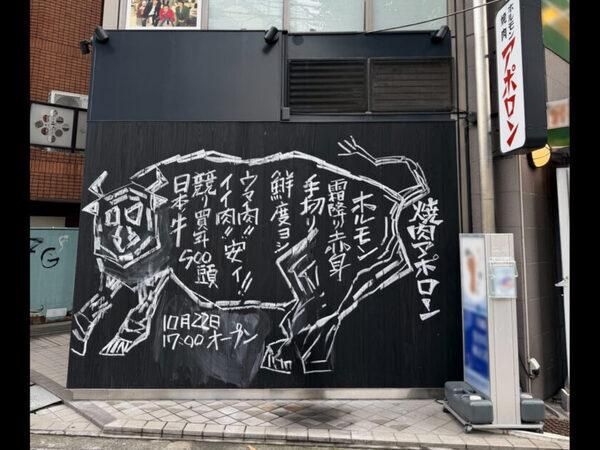 ホルモン
焼肉
アポロン
焼肉アポロン
ホルモン
霜降り赤身
手切り
鮮度ヨシ
ウマ肉!!
イイ肉!!
安イ!!
競り買年500頭
日本牛
10月22日
17:00オープン